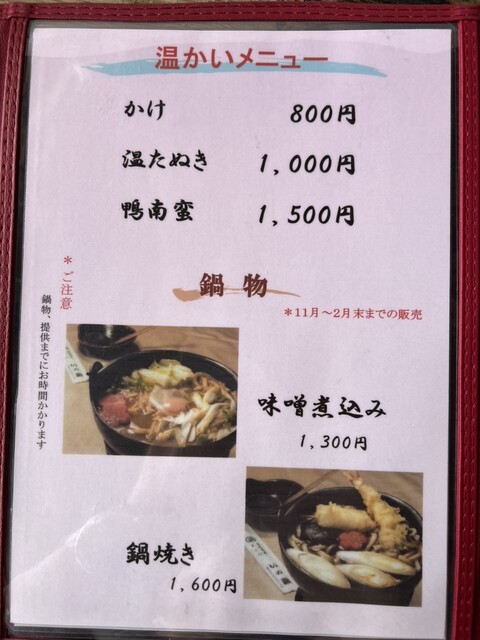 温かいメニュー
かけ 800円
温たぬき 1,000円
鴨南蛮 1,500円
鍋物
＊11月～2月末までの販売
＊ご注意
鍋物、提供までにお時間かかります
味噌煮込み
1,300円
鍋焼き
1,600円